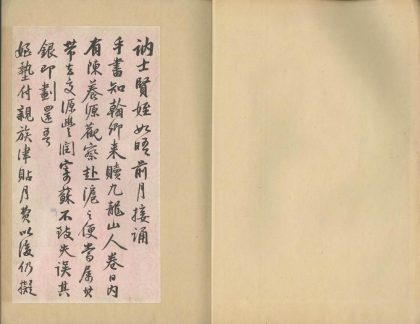 讷士賢姪如晤前月接誦
手書知翰卿來贖九龍山人卷日内
有陳養源觀察赴滬之便當屬其
帶去交源豐润寄蘇不致失誤其
銀即劃還吾
姪墊付親族津貼月費以後仍擬